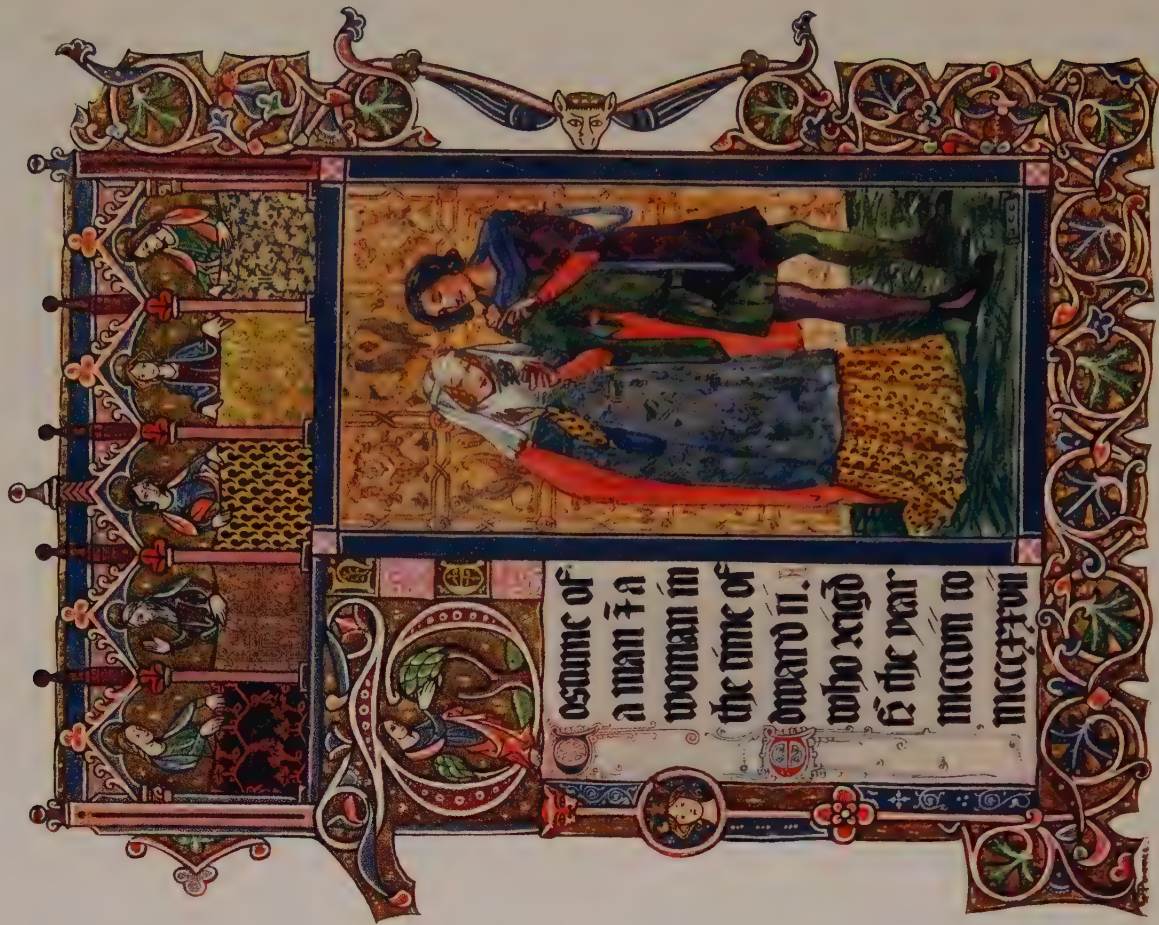 THE
Costume of
a man & a
woman in
the time of
Edward II.
who reigd
fr the year
mcccvii to
mcccxxvii